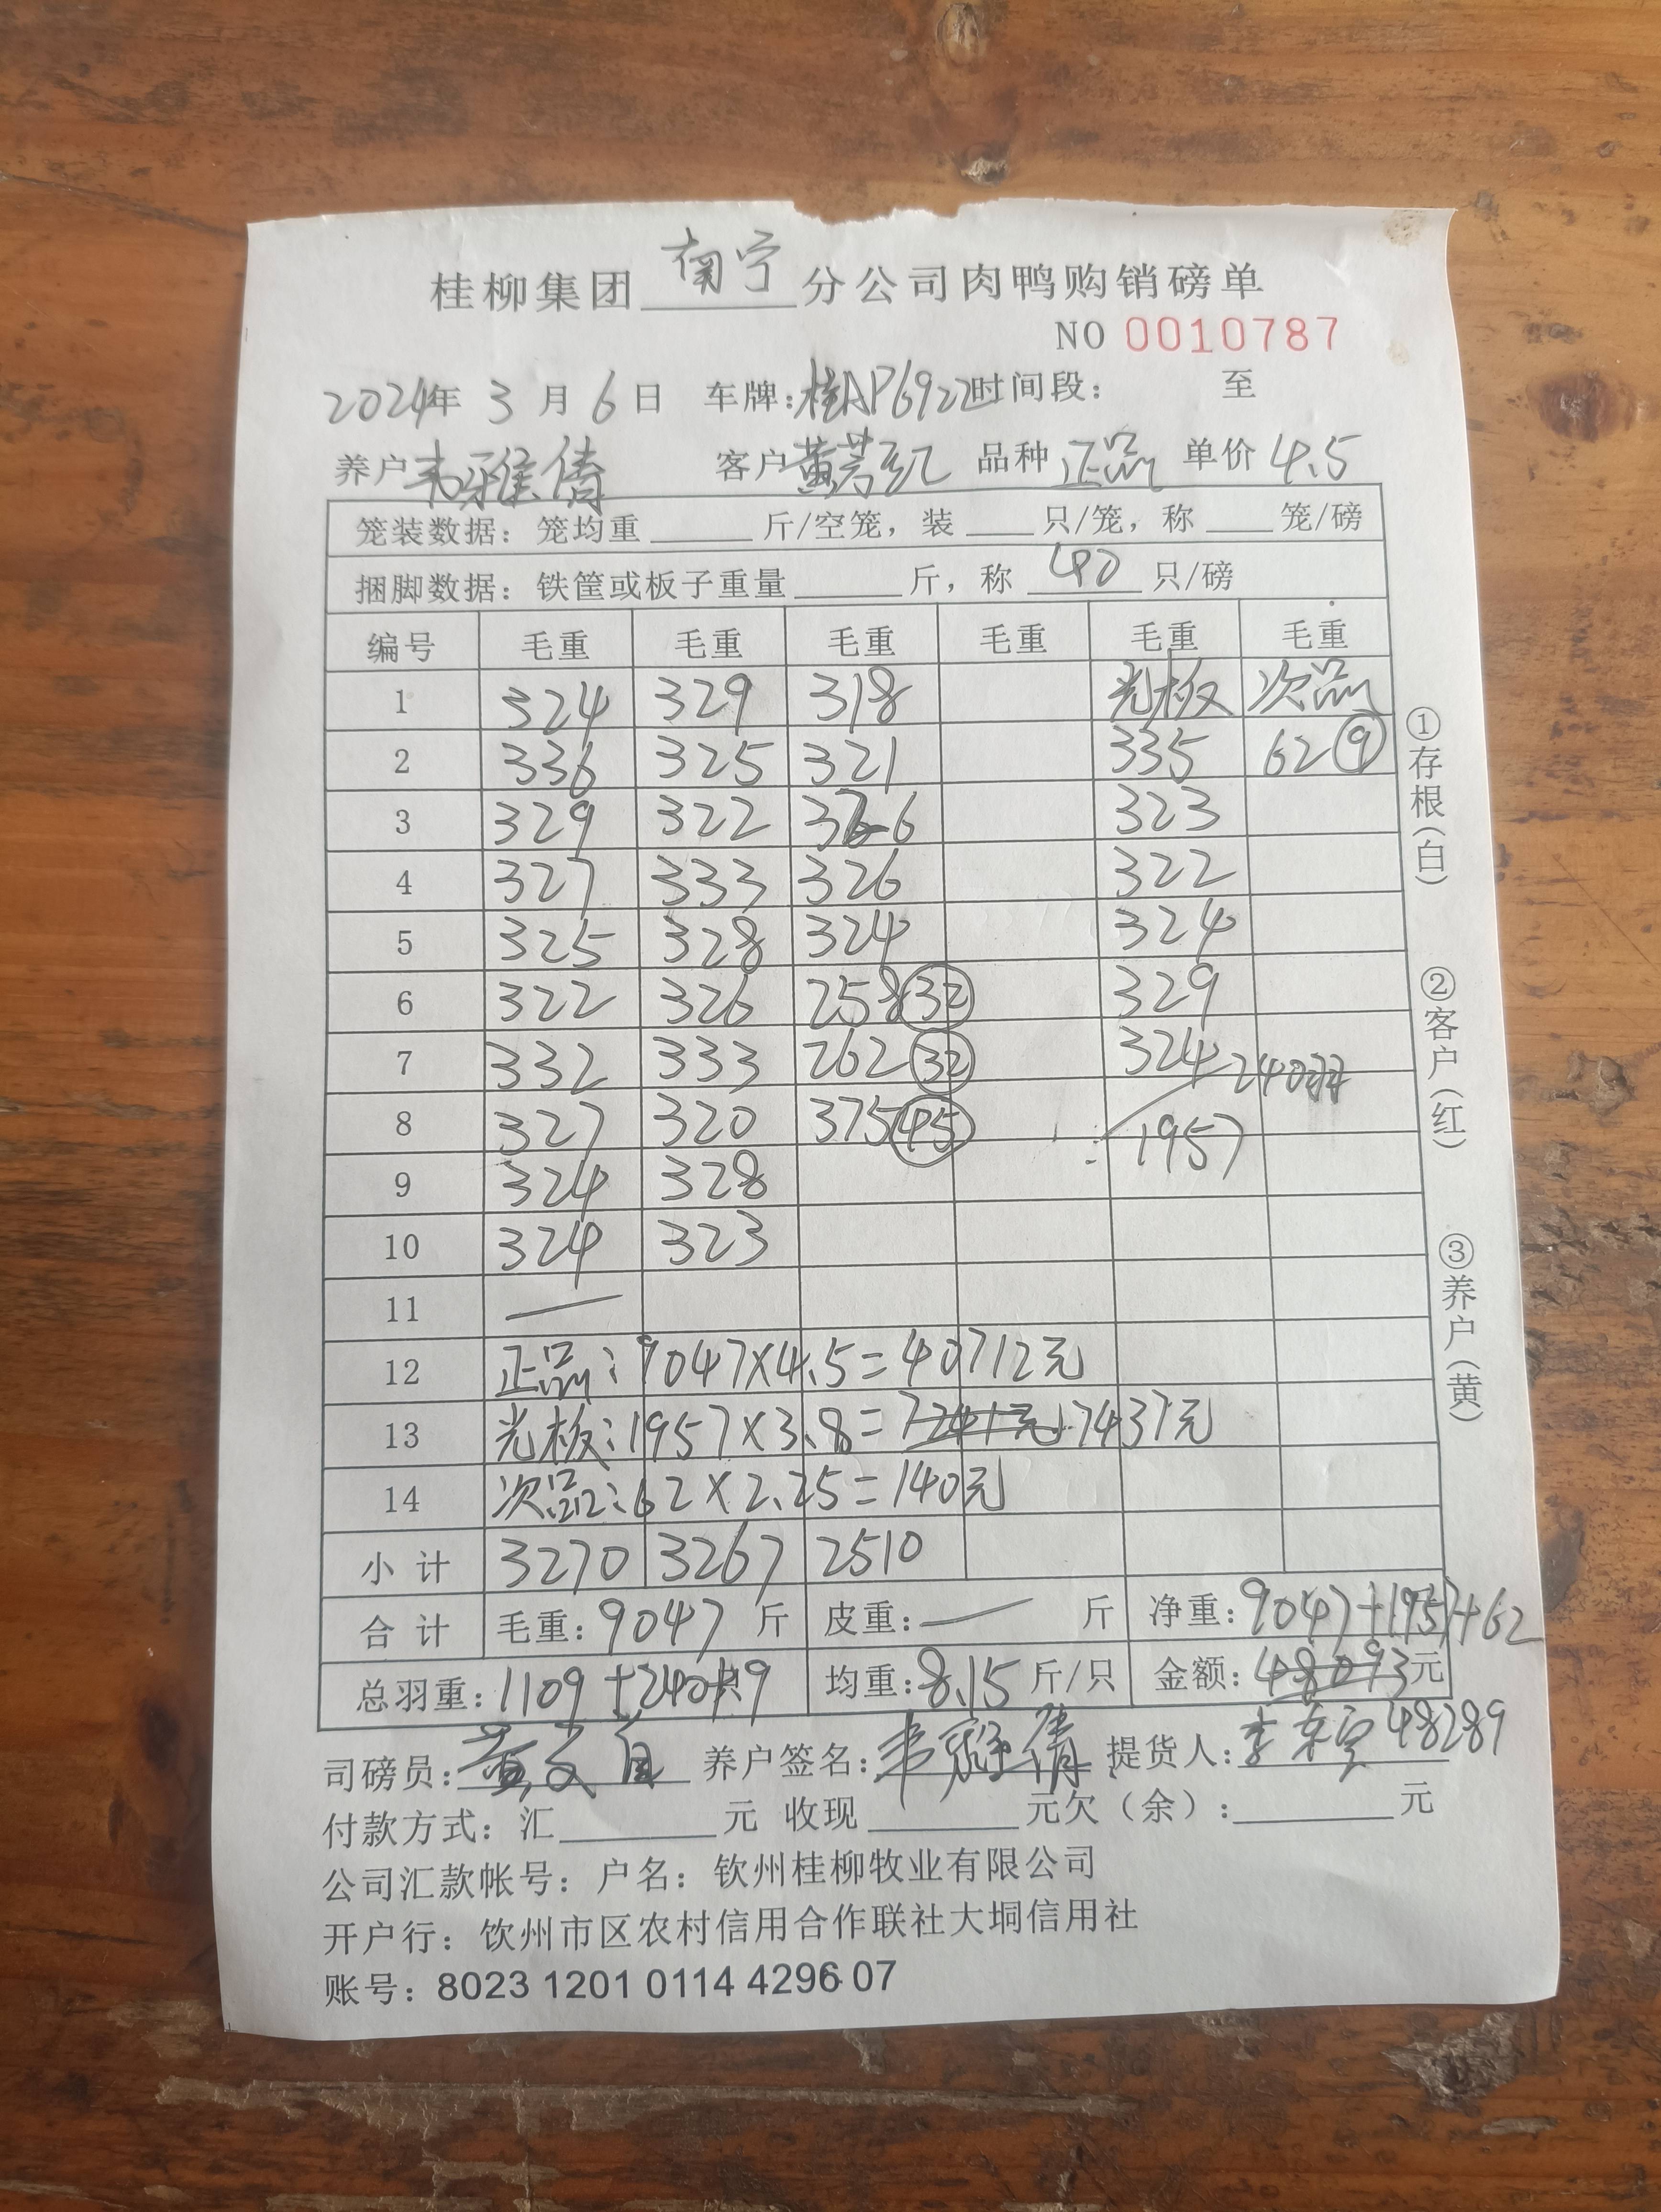 桂柳集团 南宁 分公司肉鸭购销磅单
NO 0010787
2024年 3 月 6 日 车牌:桂AP6922 时间段: 至
养户 韦雅倩 客户 黄芳红 品种 正品 单价 4.5
笼装数据: 笼均重 斤/空笼, 装 只/笼, 称 笼/磅
捆脚数据: 铁筐或板子重量 斤, 称 40 只/磅
编号 毛重 毛重 毛重 毛重 毛重 毛重
1 324 329 318 光板 次品
2 336 325 321 335 62 ⑨
3 329 322 326 323
4 327 333 326 322
5 325 328 324 324
6 322 326 258 ㉜ 329
7 332 333 262 ㉜ 324 240羽
8 327 320 375 ㊺ 1957
9 324 328
10 324 323
11 —
12 正品: 9047×4.5=40712元
13 光板: 1957×3.8=7241元 7437元
14 次品: 62×2.25=140元
小计 3270 3267 2510
合计 毛重: 9047 斤 皮重: — 斤 净重: 9047+1957+62
总羽重: 1109+240+9 均重: 8.15 斤/只 金额: 48093元
司磅员: 养户签名: 韦雅倩 提货人: 48289
付款方式: 汇 元 收现 元欠(余): 元
公司汇款帐号: 户名: 钦州桂柳牧业有限公司
开户行: 钦州市区农村信用合作联社大垌信用社
账号: 8023 1201 0114 4296 07
①存根(白)
②客户(红)
③养户(黄)